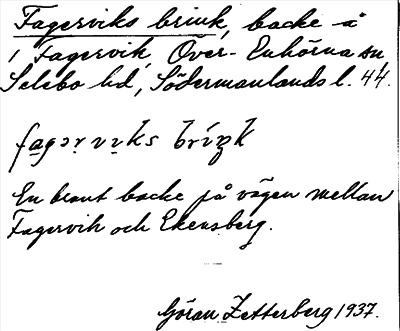 Fagerviks brink, backe å
1 Fagervik, Över-Enhörna sn
Selebo hd, Södermanlands l. 44.
fagər viks briŋk
En brant backe på vägen mellan
Fagervik och Ekensberg.
Göran Zetterberg 1937.